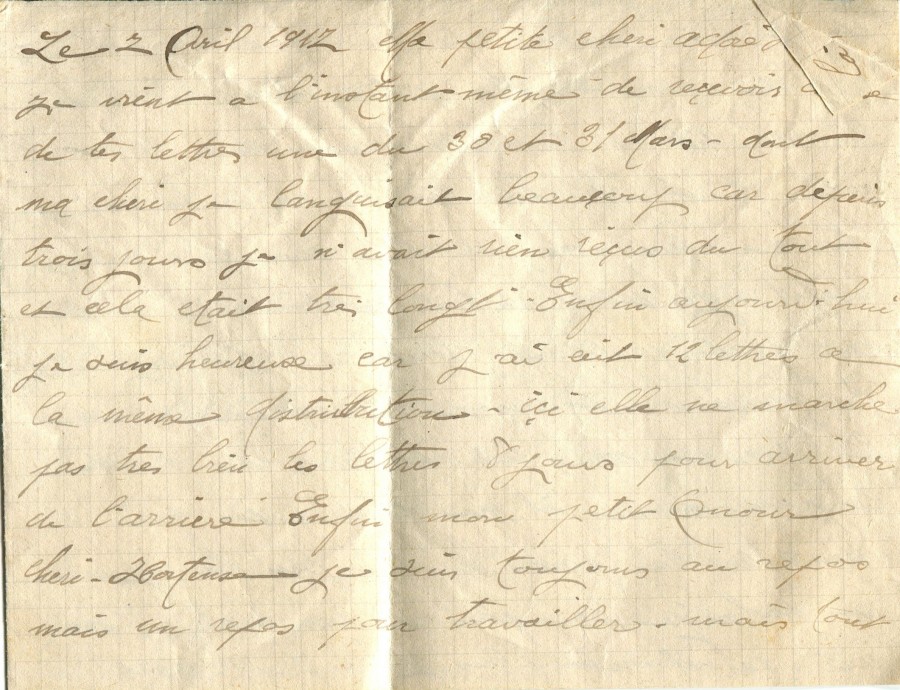 Le 2 Avril 1917 Ma petite cheri
je vient a l'instant même de reçevoir
de tes lettres une du 30 et 31 Mars - dont
ma cheri je languisait beaucoup car depuis
trois jours je n'avait rien reçus du tout
et cela etait tres longt - Enfin aujourd'hui
je suis heureuse car j'ai eut 12 lettres a
la même distribution - içi elle ne marche
pas tres bien les lettres 8 jours pour arriver
de l'arriere Enfin mon petit Amour
cheri - Hortense je suis toujours au repos
mais un repos pour travailler - mais tout